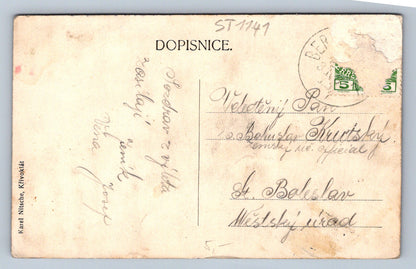 ST1141
DOPISNICE.
BER
5
5
Pozdrav z výleta
zasílají
Jeník Josef
Věra
Velectěný Pan
Bohuslav
St. Boleslav
Městský úřad
Karel Nitsche, Křivoklát
5,-